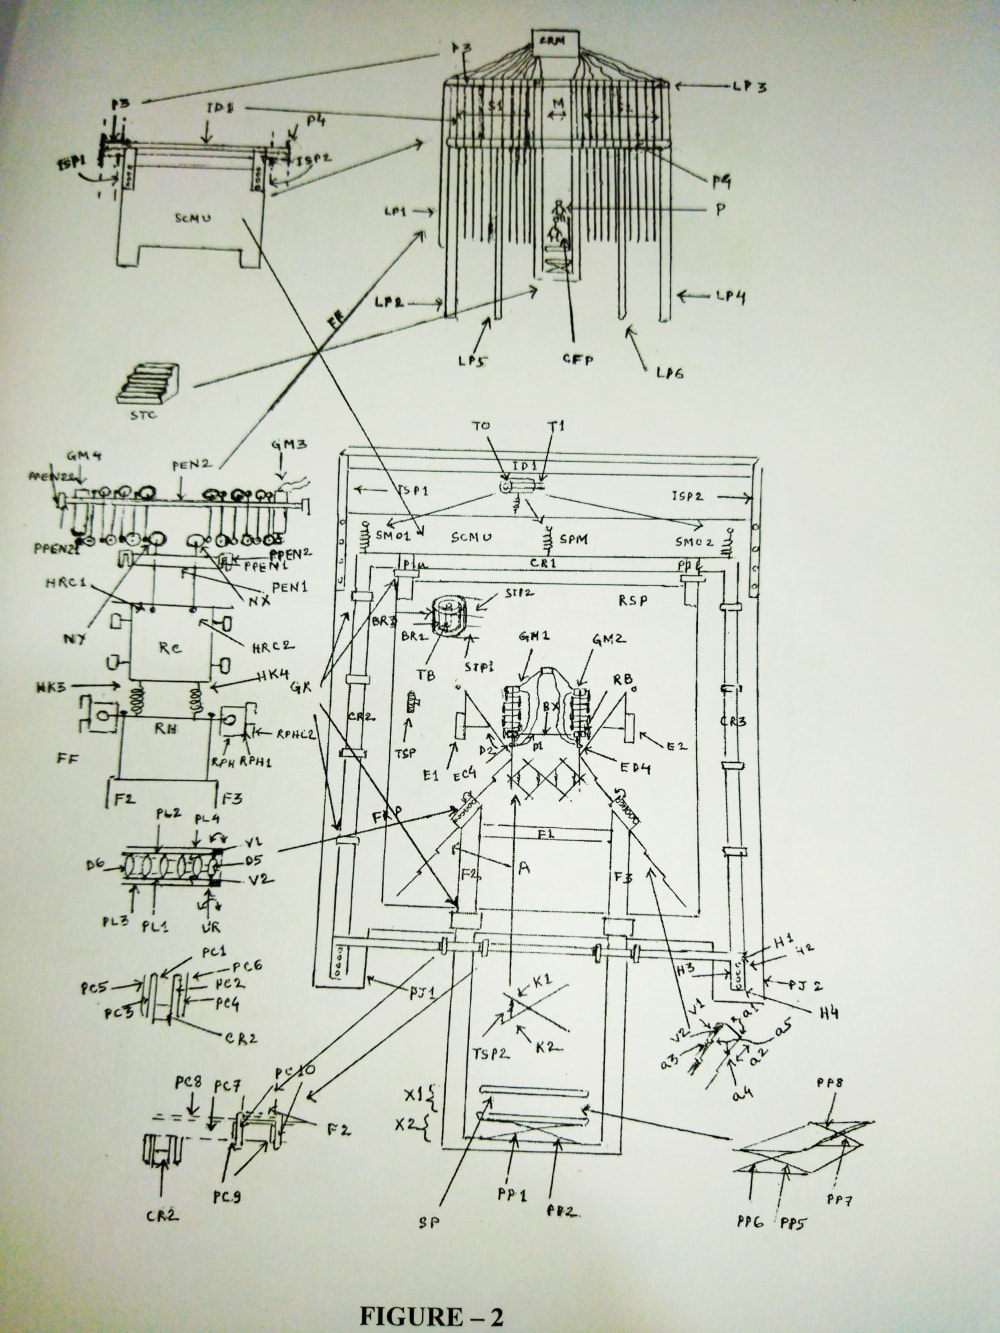 CRM
P3
LP3
P3
ID1
P4
S1
M
S2
ISP1
ISP2
P4
SCMU
LP1
P
LP2
FR
LP4
LP5
CFP
LP6
STC
TO
T1
GM4
GM3
PEN2
ID1
ISP1
ISP2
SMO1
SCMU
SPM
SMO2
PPEN21
PPEN2
PPEN1
CR1
HRC1
PEN1
NX
STP2
RSP
BR2
NY
RC
HRC2
GM1
GM2
TB
STP1
HK3
HK4
GR
RB
BX
CR2
CR3
RH
RPHC2
TSP
D2
D1
E2
FF
RPH
RPH1
E1
EC4
ED4
F2
F3
PL2
PL4
V1
F1
D6
D5
A
V2
F2
F3
PL3
PL1
UR
PC1
H1
PC6
H2
PC5
PC2
H3
PC3
PC4
PJ1
K1
PJ2
CR2
H4
V1
a1
V2
a5
TSP2
K2
a3
a2
PC8
PC7
PC10
a4
X1
PP8
X2
F2
PC9
PP1
PP2
PP7
CR2
SP
PP6
PP5
FIGURE – 2